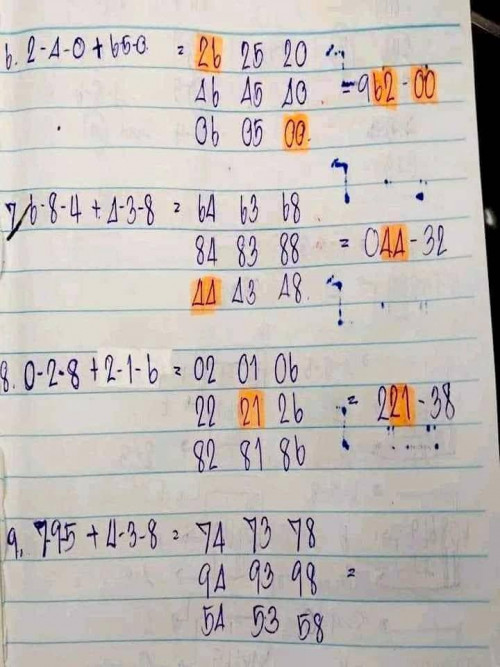 6. 2-4-0 + 65-0 = 26 25 20
46 45 40 = 962-00
06 05 00
7. 6-8-4 + 4-3-8 = 64 63 68
84 83 88 = 044-32
44 43 48
8. 0-2-8 + 2-1-6 = 02 01 06
22 21 26 = 221-38
82 81 86
9. 795 + 4-3-8 = 74 73 78
94 93 98 =
54 53 58